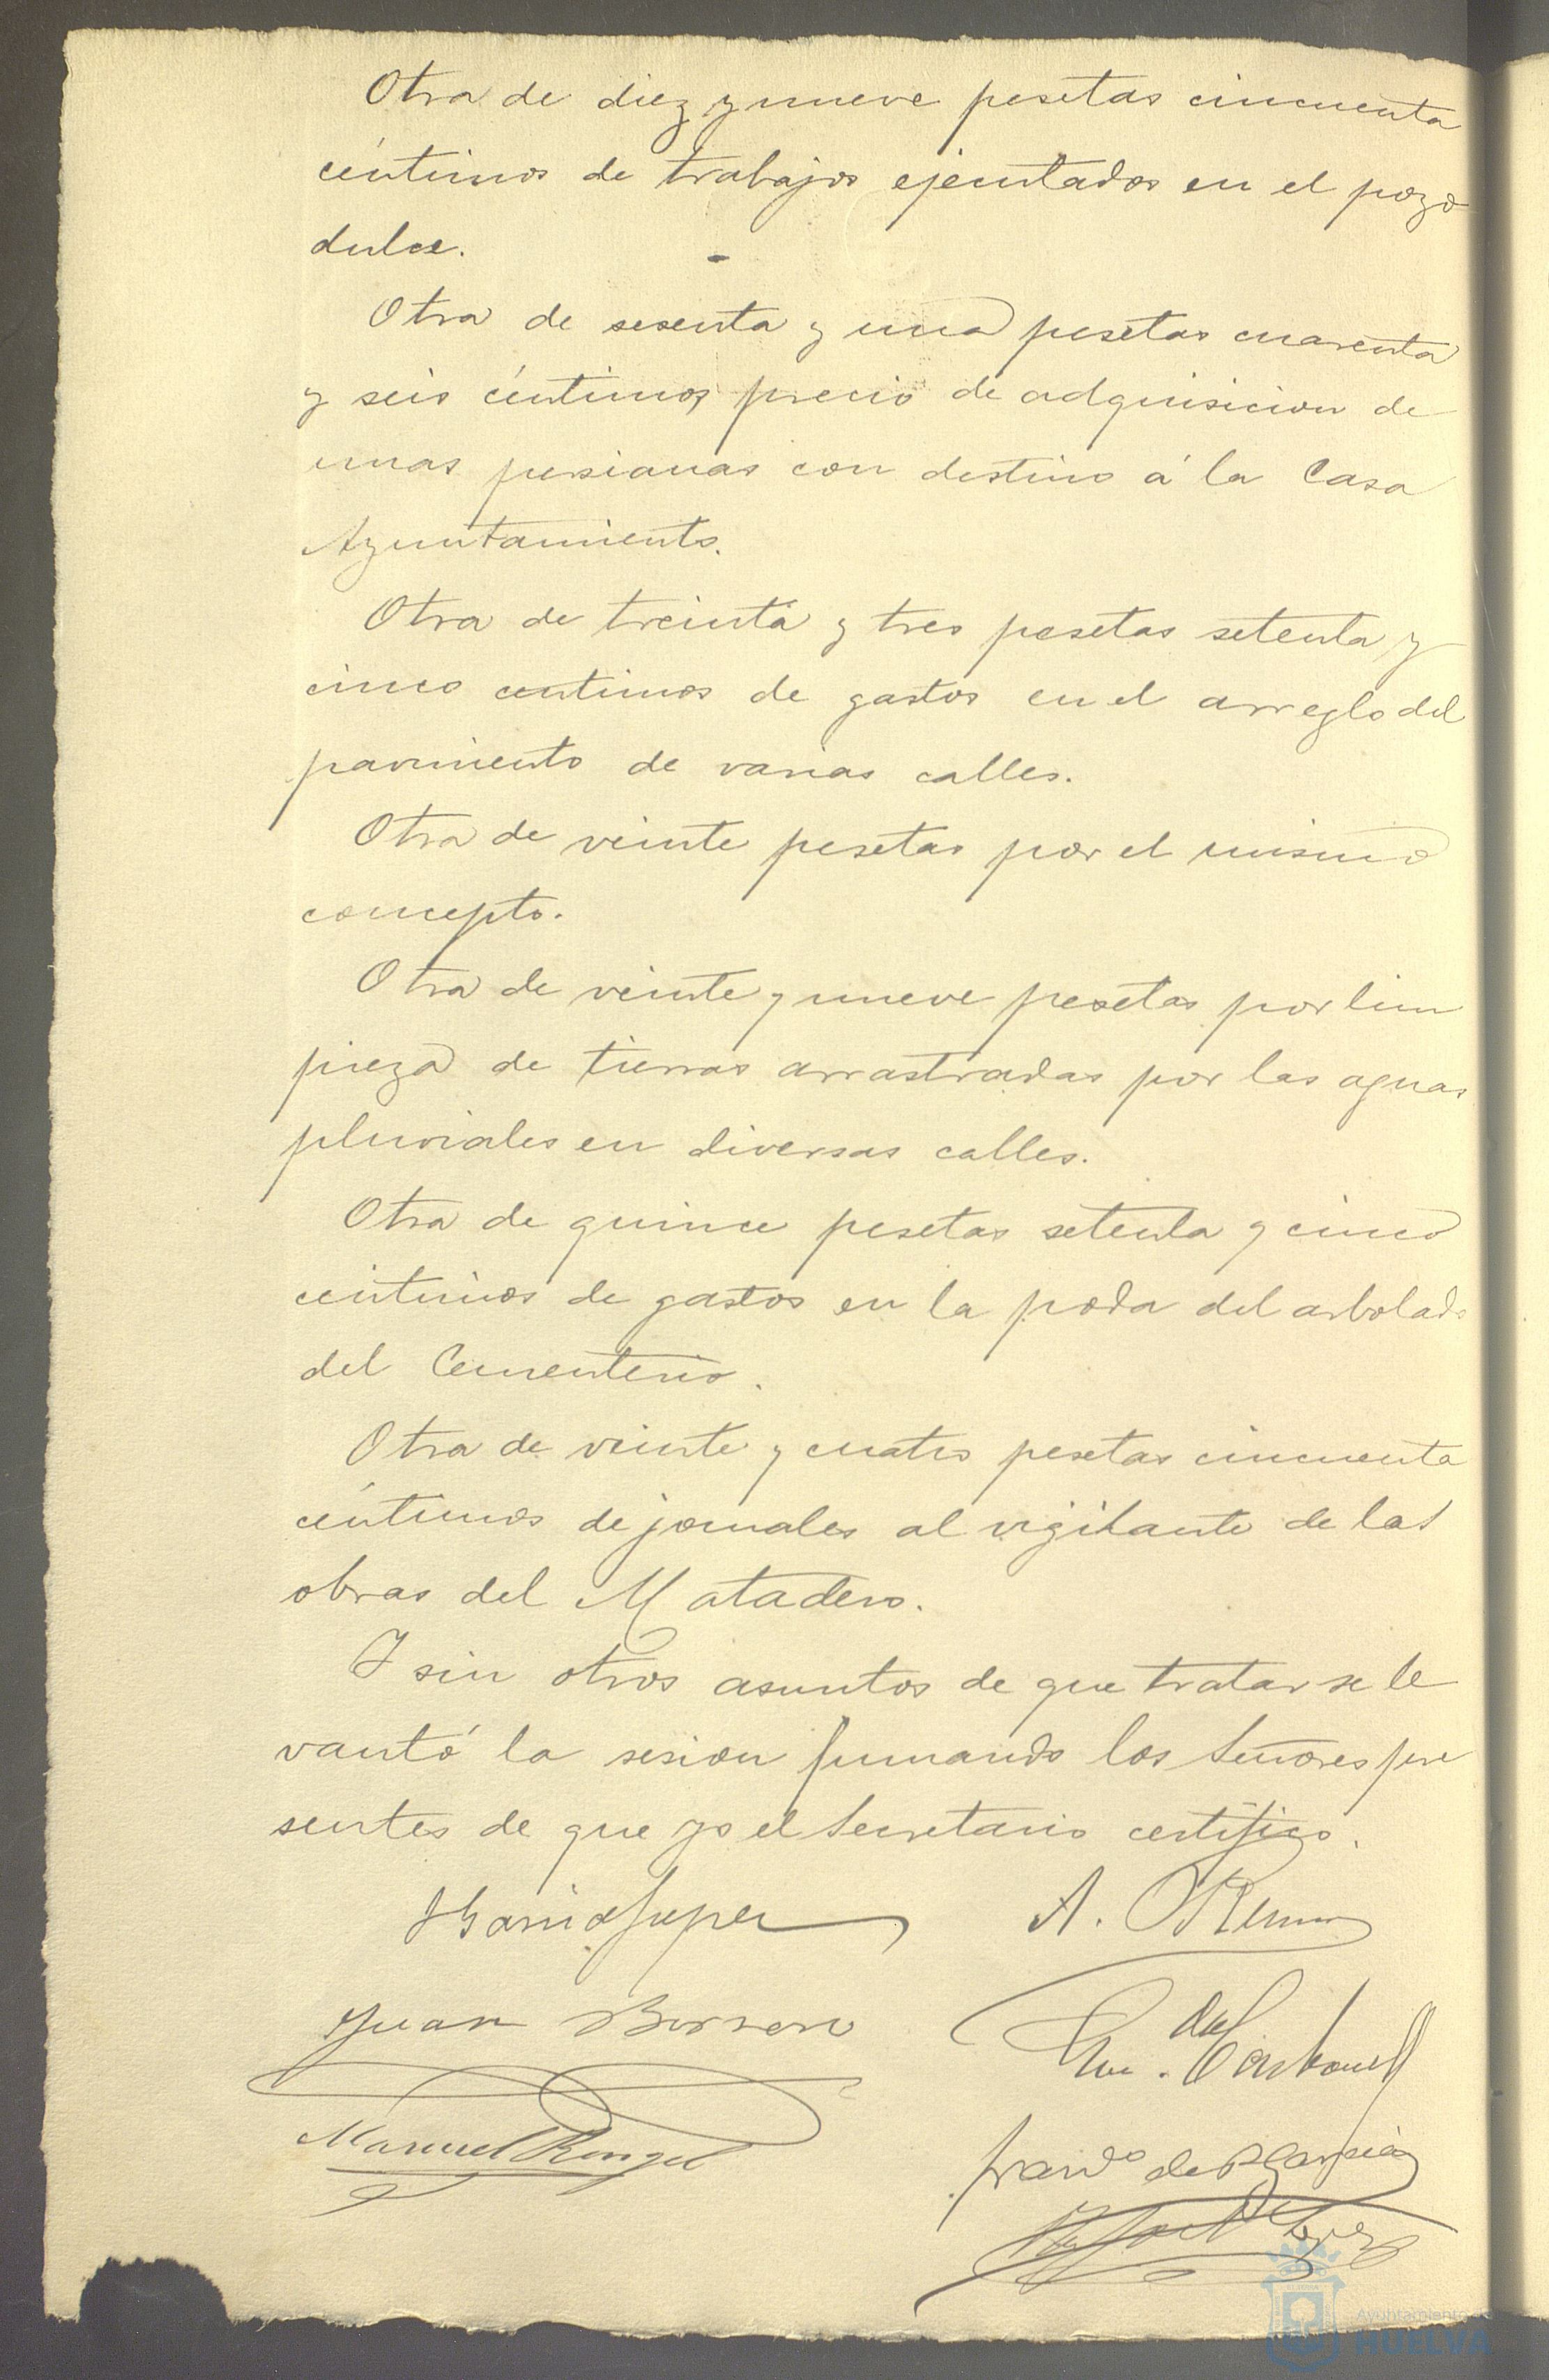 Otra de diez y nueve pesetas cincuenta
céntimos de trabajos ejecutados en el pozo
dulce.
Otra de sesenta y una pesetas cuarenta
y seis céntimos precio de adquisicion de
unas persianas con destino á la Casa
Ayuntamiento.
Otra de treinta y tres pesetas setenta y
cinco centimos de gastos en el arreglo del
pavimento de varias calles.
Otra de veinte pesetas por el mismo
concepto.
Otra de veinte y nueve pesetas por lim
pieza de tierras arrastradas por las aguas
pluviales en diversas calles.
Otra de quince pesetas setenta y cinco
céntimos de gastos en la poda del arbolado
del Cementerio.
Otra de veinte y cuatro pesetas cincuenta
céntimos de jornales al vigilante de las
obras del Matadero.
Y sin otros asuntos de que tratar se le
vantó la sesion firmando los Señores pre
sentes de que yo el Secretario certifico.
A.
Juan Borrero
Carbonell
Manuel Rengel
de P. García
Ayuntamiento de
HUELVA